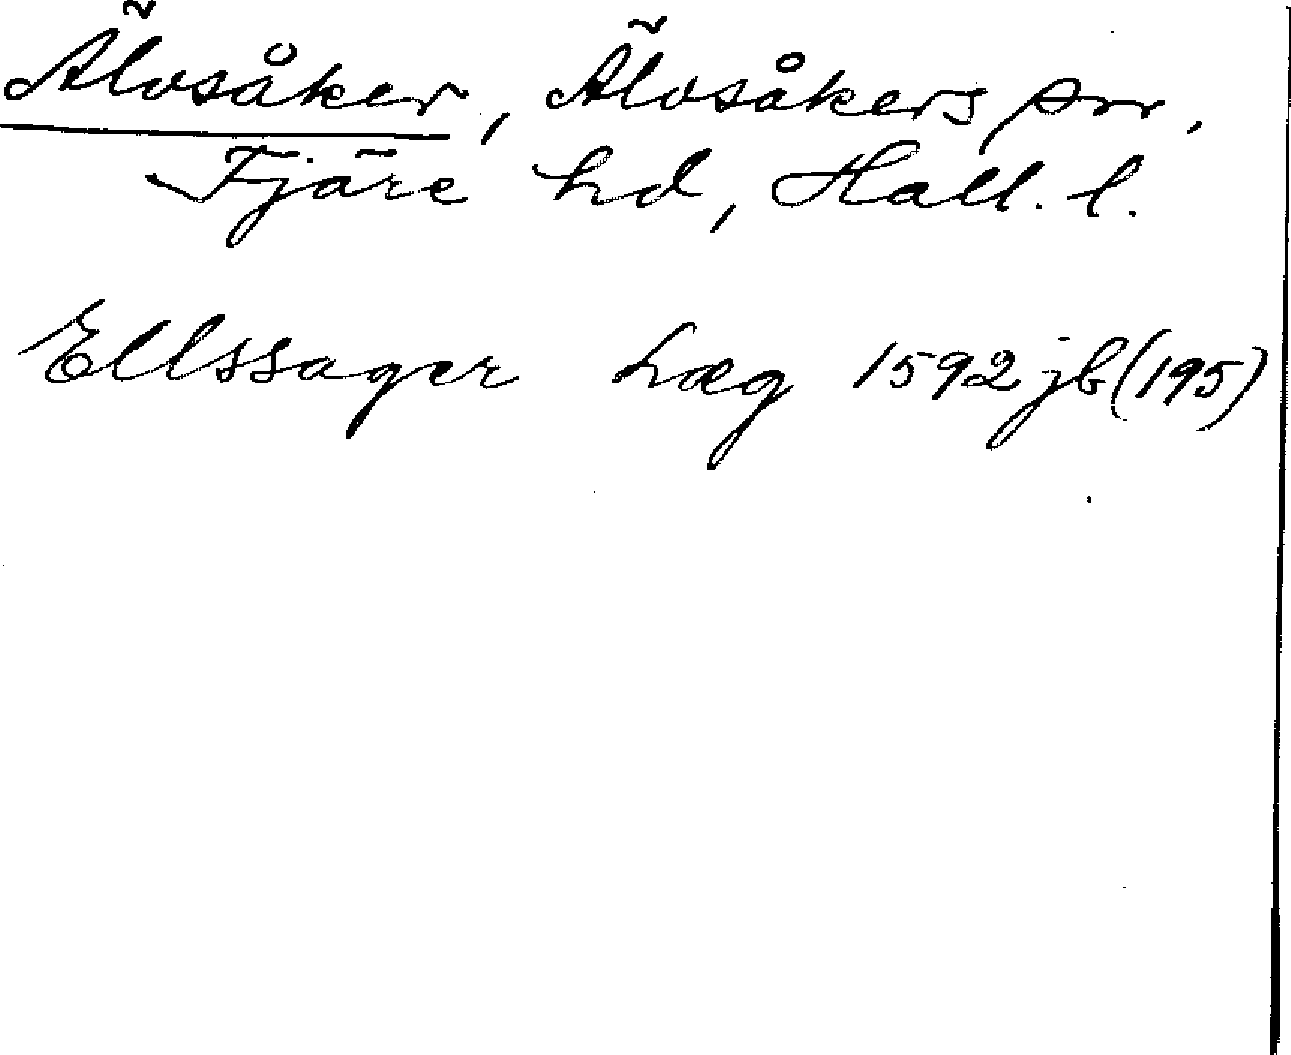 Älvsåker, Älvsåkers snr,
Fjäre hd, Hall. l.
Ellssager hæg 1592 jb (195)